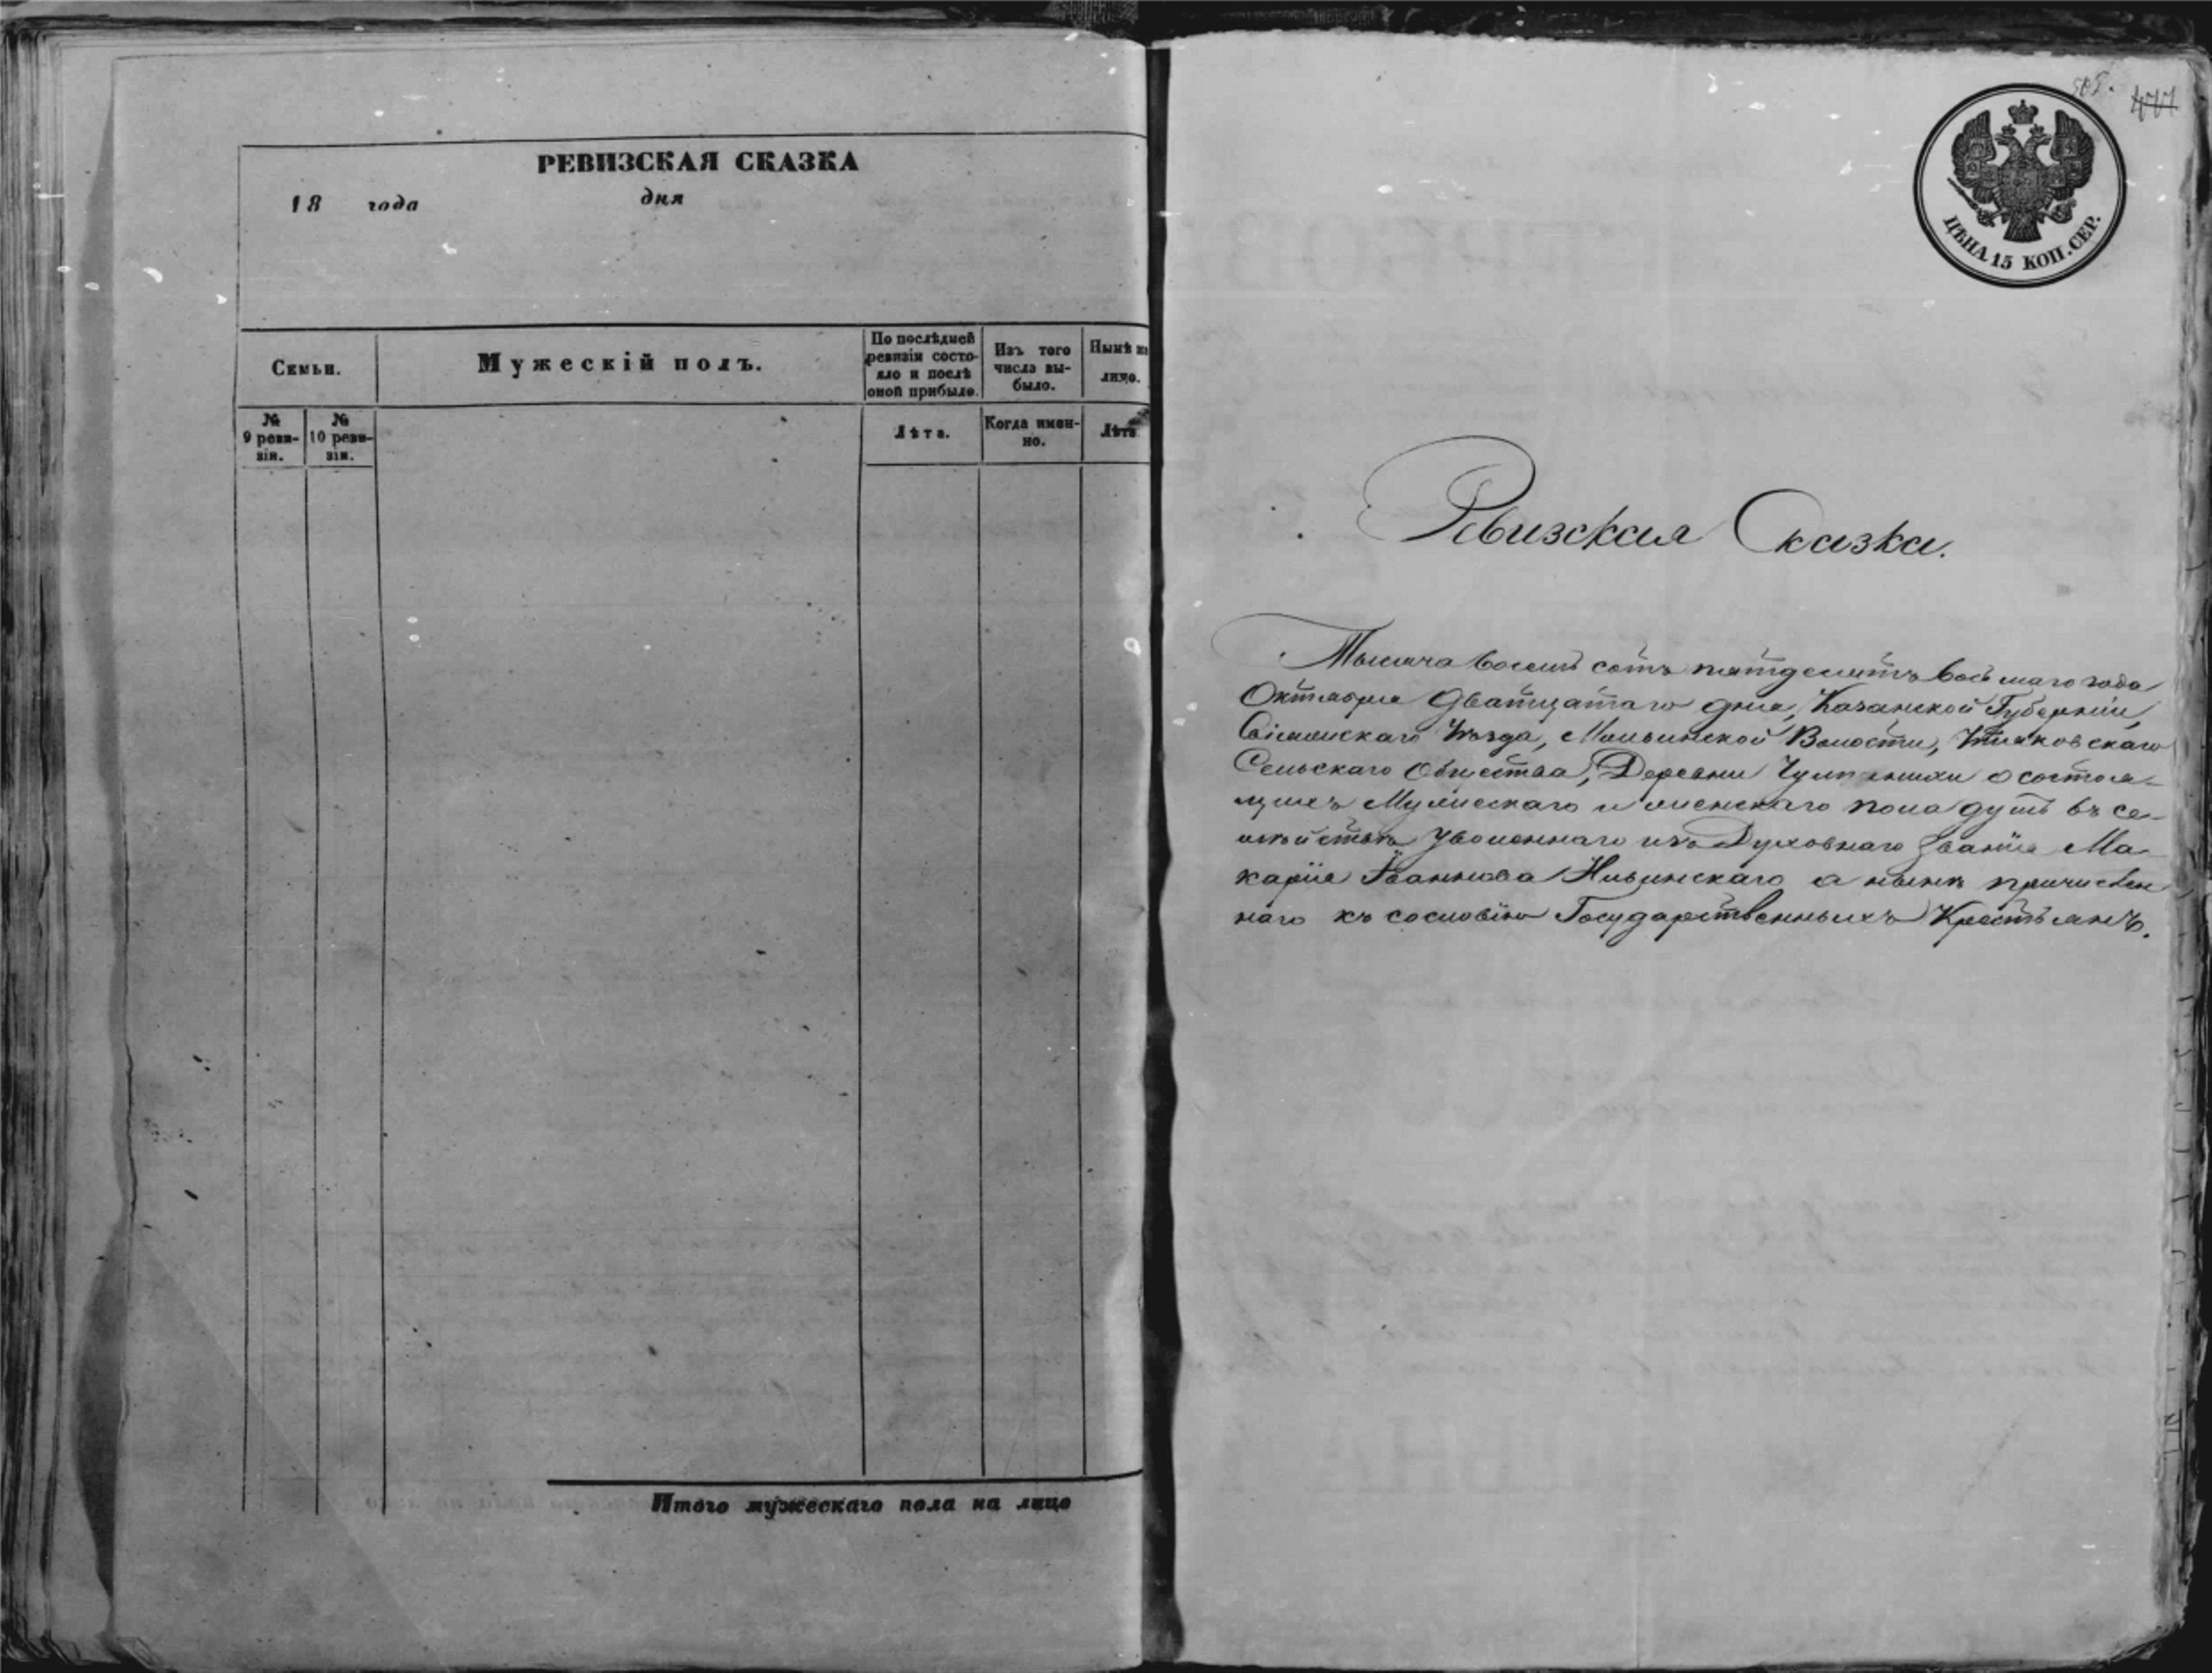 РЕВИЗСКАЯ СКАЗКА
18 года дня
Семьи.
Мужескій полъ.
По послѣдней ревизіи состояло и послѣ оной прибыло.
Изъ того числа вы-было.
Нынѣ на лицо.
№ 9 реви-зіи.
№ 10 реви-зіи.
Лѣта.
Когда имен-но.
Лѣта
Итого мужескаго пола на лицо
477
ЦѢНА 15 КОП. СЕР.
Ревизская Сказка.
Тысяча восемь сотъ пятдесятъ восьмаго года
Октября дватцатаго дня, Казанской Губерніи,
Уѣзда, Волости,
Сельскаго Общества, Деревни о состоя-
щихъ Мужескаго и женскаго пола душъ въ се-
мействѣ уволеннаго изъ Духовнаго званія Ма-
карія Іваннова а нынѣ причислен
наго къ сословію Государственныхъ Крестьянъ.